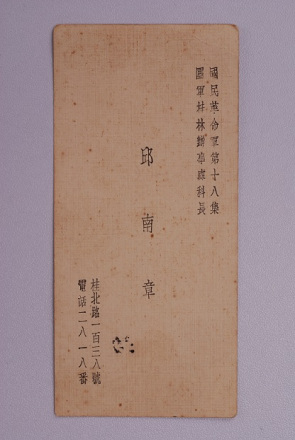 國民革命軍第十八集
團軍桂林辦事處科長
邱南章
桂北路一百三八號
電話二八一八番